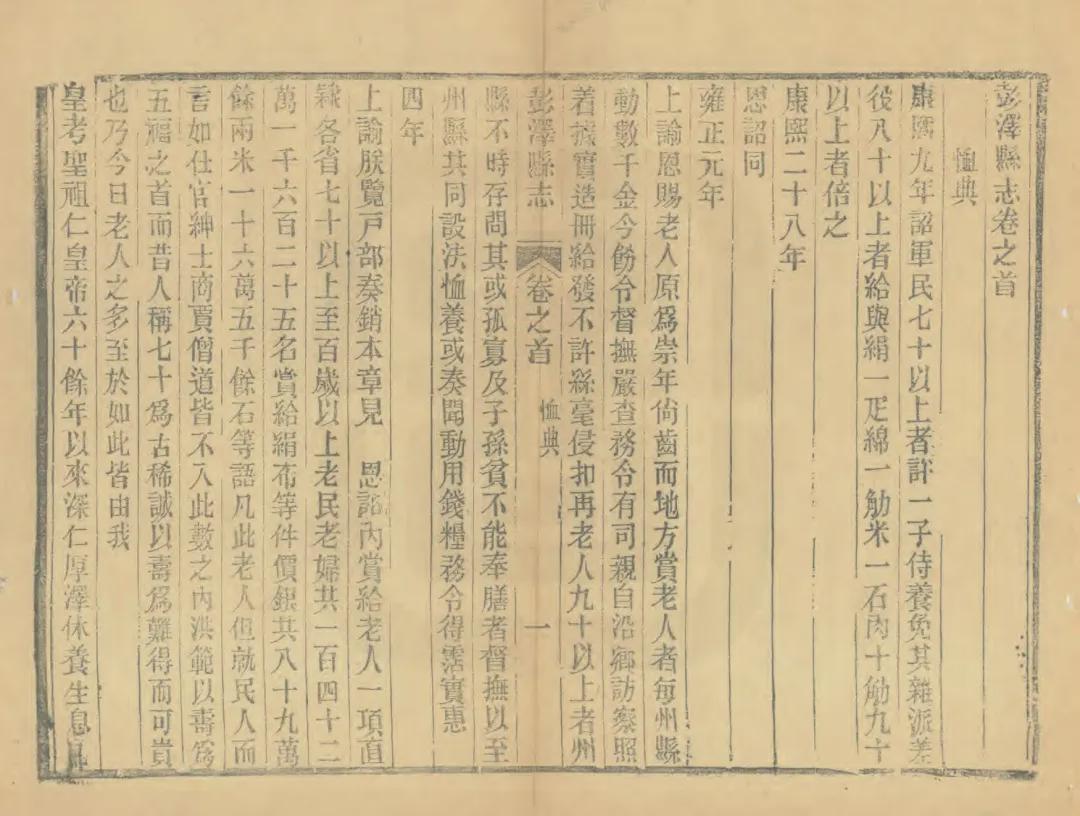 彭澤縣志卷之首
恤典
康熙九年詔軍民七十以上者許一子侍養免其雜派差
役八十以上者給與絹一疋綿一觔米一石肉十觔九十
以上者倍之
康熙二十八年
恩詔同
雍正元年
上諭恩賜老人原爲崇年尙齒而地方賞老人者每州縣
動數千金今飭令督撫嚴查務令有司親自沿鄉訪察照
着據實造冊給發不許絲毫侵扣再老人九十以上者州
彭澤縣志 卷之首 恤典 一
縣不時存問其或孤寡及子孫貧不能奉膳者督撫以至
州縣共同設法恤養或奏聞動用錢糧務令得霑實惠
四年
上諭朕覽戸部奏銷本章見 恩詔內賞給老人一項直
隸各省七十以上至百歲以上老民老婦共一百四十二
萬一千六百二十五名賞給絹布等件價銀共八十九萬
餘兩米一十六萬五千餘石等語凡此老人但就民人而
言如仕官紳士商賈僧道皆不入此數之內洪範以壽爲
五福之首而昔人稱七十爲古稀誠以壽爲難得而可貴
也乃今日老人之多至於如此皆由我
皇考聖祖仁皇帝六十餘年以來深仁厚澤休養生息